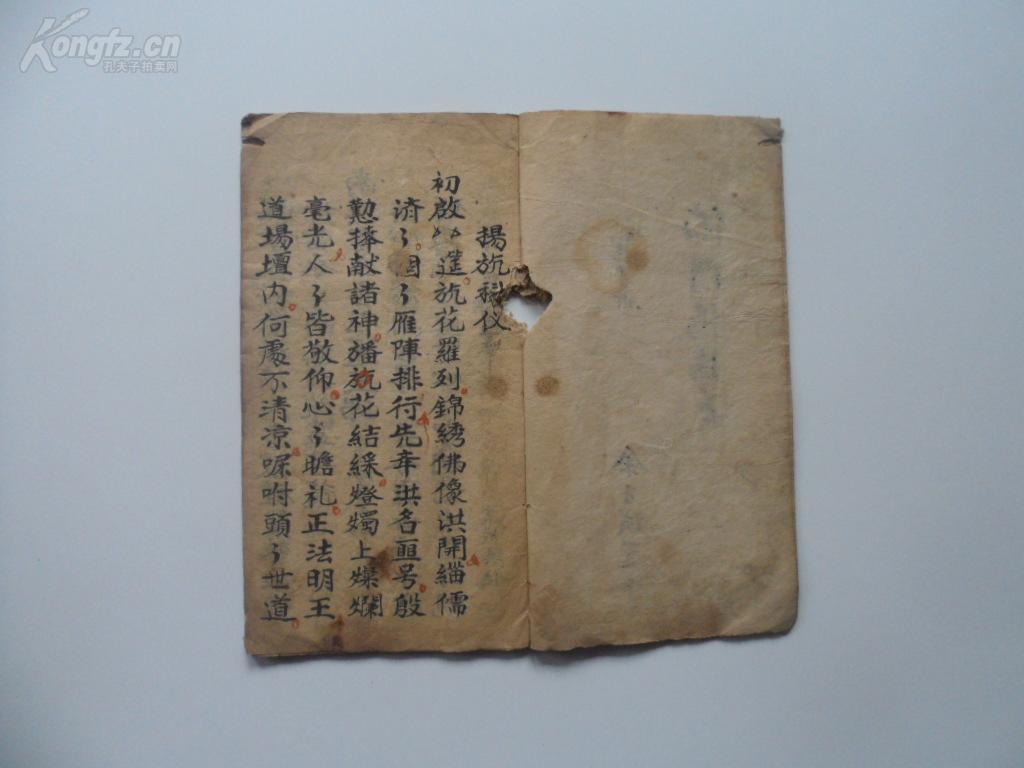 Kongfz.cn
孔夫子拍卖网
揚旂科仪
初啟〻筵旂花羅列錦绣佛像洪開緇儒
济〻個〻雁陣排行先奉洪名亜号殷
懃捧献諸神旛旂花結綵燈燭上燦爛
毫光人〻皆敬仰心〻瞻礼正法明王
道場壇内何處不清凉嘱咐頭〻世道